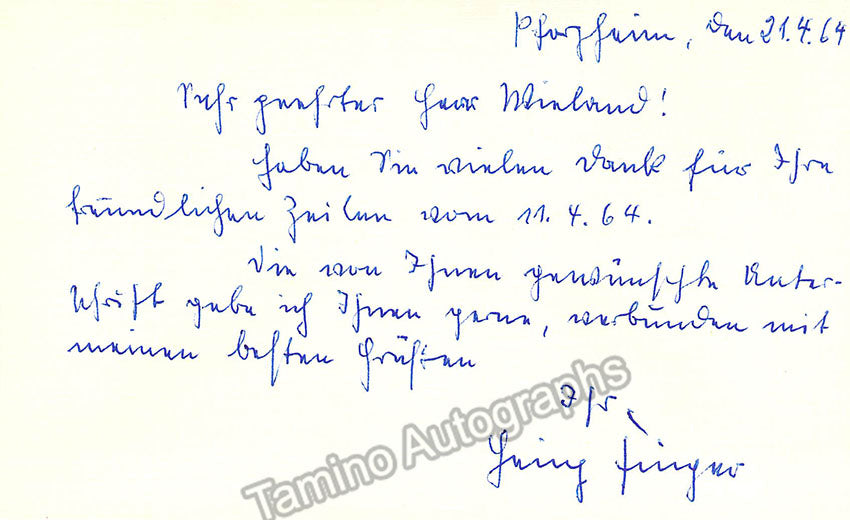 Pforzheim, den 21.4.64
Sehr geehrter Herr Wieland!
Haben Sie vielen Dank für Ihre
freundlichen Zeilen vom 11.4.64.
Die von Ihnen gewünschte Unter-
schrift gebe ich Ihnen gerne, verbunden mit
meinen besten Grüßen
Ihr
Heinz Finger
Tamino Autographs